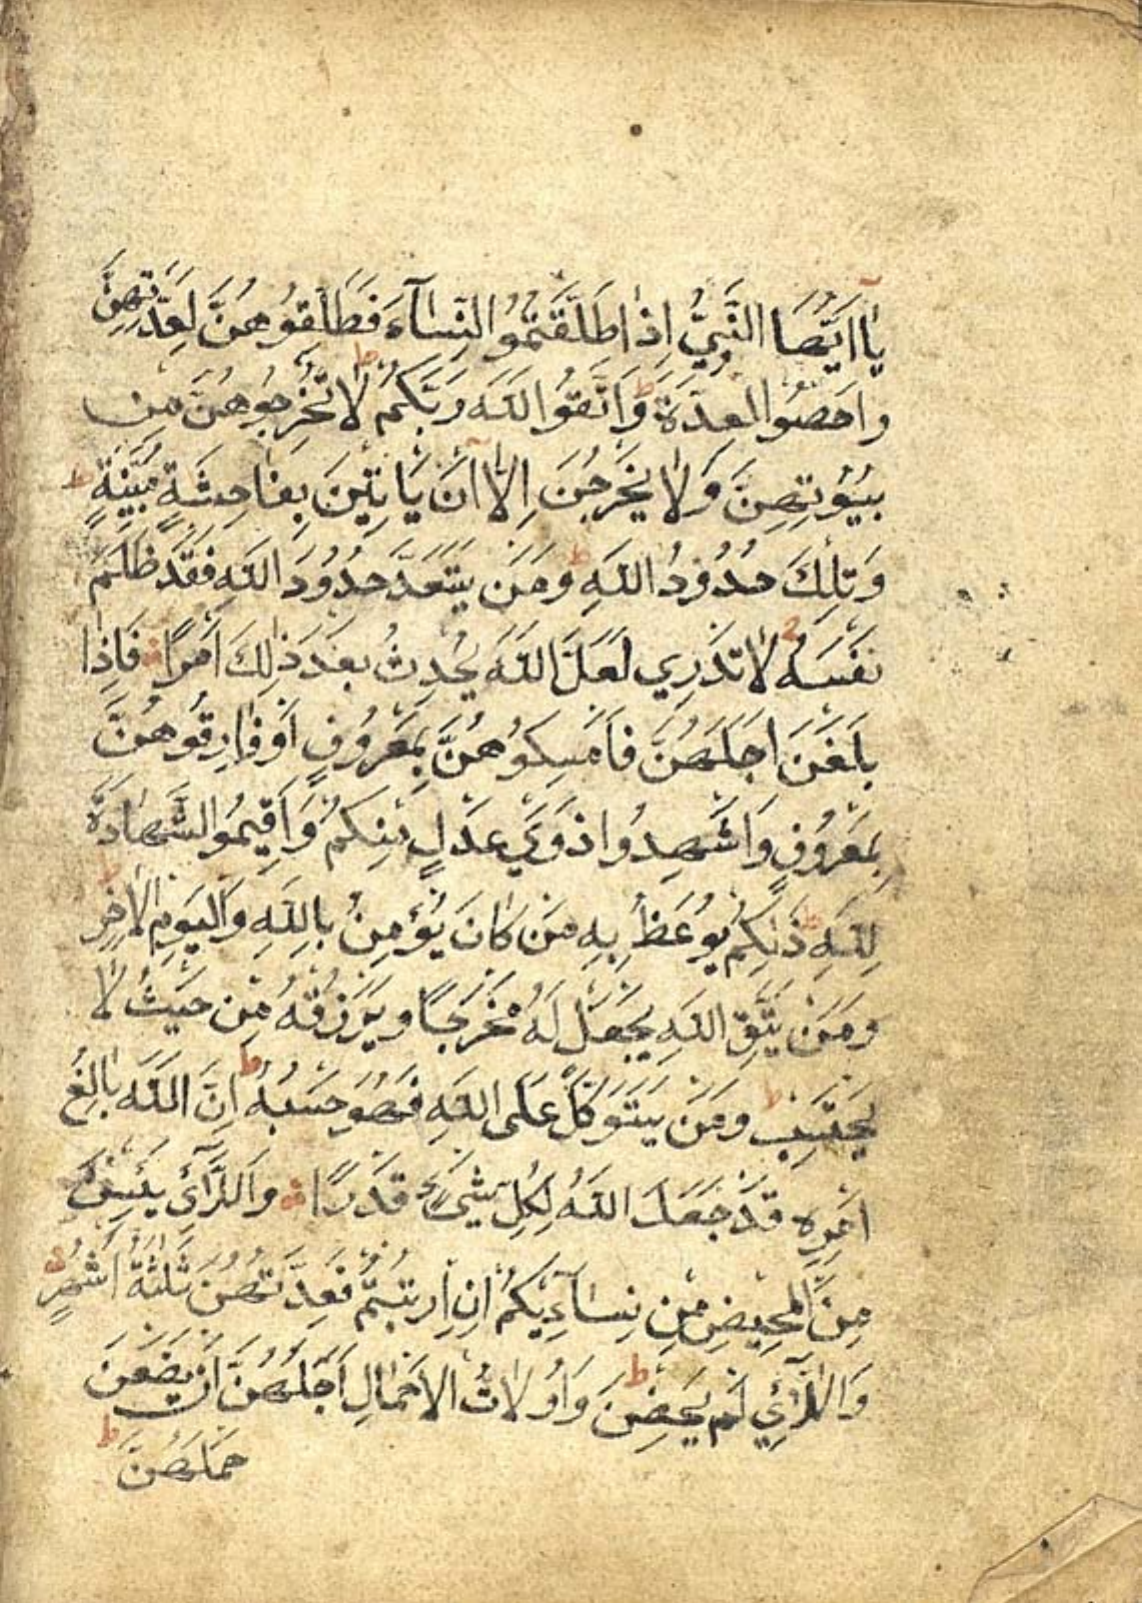 يَا اَيُّهَا النَّبِيُّ اِذَا طَلَّقْتُمُ النِّسَآءَ فَطَلِّقُوهُنَّ لِعِدَّتِهِنَّ
وَاَحْصُوا الْعِدَّةَ ط وَاتَّقُوا اللّٰهَ رَبَّكُمْ ط لَا تُخْرِجُوهُنَّ مِنْ
بُيُوتِهِنَّ وَلَا يَخْرُجْنَ اِلَّا اَنْ يَاْتِينَ بِفَاحِشَةٍ مُبَيِّنَةٍ ط
وَتِلْكَ حُدُودُ اللّٰهِ ط وَمَنْ يَتَعَدَّ حُدُودَ اللّٰهِ فَقَدْ ظَلَمَ
نَفْسَهُ لَا تَدْرِي لَعَلَّ اللّٰهَ يُحْدِثُ بَعْدَ ذٰلِكَ اَمْرًا فَاِذَا
بَلَغْنَ اَجَلَهُنَّ فَاَمْسِكُوهُنَّ بِمَعْرُوفٍ اَوْ فَارِقُوهُنَّ
بِمَعْرُوفٍ وَاَشْهِدُوا ذَوَيْ عَدْلٍ مِنْكُمْ وَاَقِيمُوا الشَّهَادَةَ
لِلّٰهِ ط ذٰلِكُمْ يُوعَظُ بِهِ مَنْ كَانَ يُؤْمِنُ بِاللّٰهِ وَالْيَوْمِ الْاٰخِرِ ط
وَمَنْ يَتَّقِ اللّٰهَ يَجْعَلْ لَهُ مَخْرَجًا وَيَرْزُقْهُ مِنْ حَيْثُ لَا
يَحْتَسِبُ ط وَمَنْ يَتَوَكَّلْ عَلَى اللّٰهِ فَهُوَ حَسْبُهُ ط اِنَّ اللّٰهَ بَالِغُ
اَمْرِهِ قَدْ جَعَلَ اللّٰهُ لِكُلِّ شَيْءٍ قَدْرًا وَاللَّآئِي يَئِسْنَ
مِنَ الْمَحِيضِ مِنْ نِسَآءِكُمْ اِنِ ارْتَبْتُمْ فَعِدَّتُهُنَّ ثَلٰثَةُ اَشْهُرٍ
وَاللَّآئِي لَمْ يَحِضْنَ ط وَاُولَاتُ الْاَحْمَالِ اَجَلُهُنَّ اَنْ يَضَعْنَ
حَمْلَهُنَّ ط